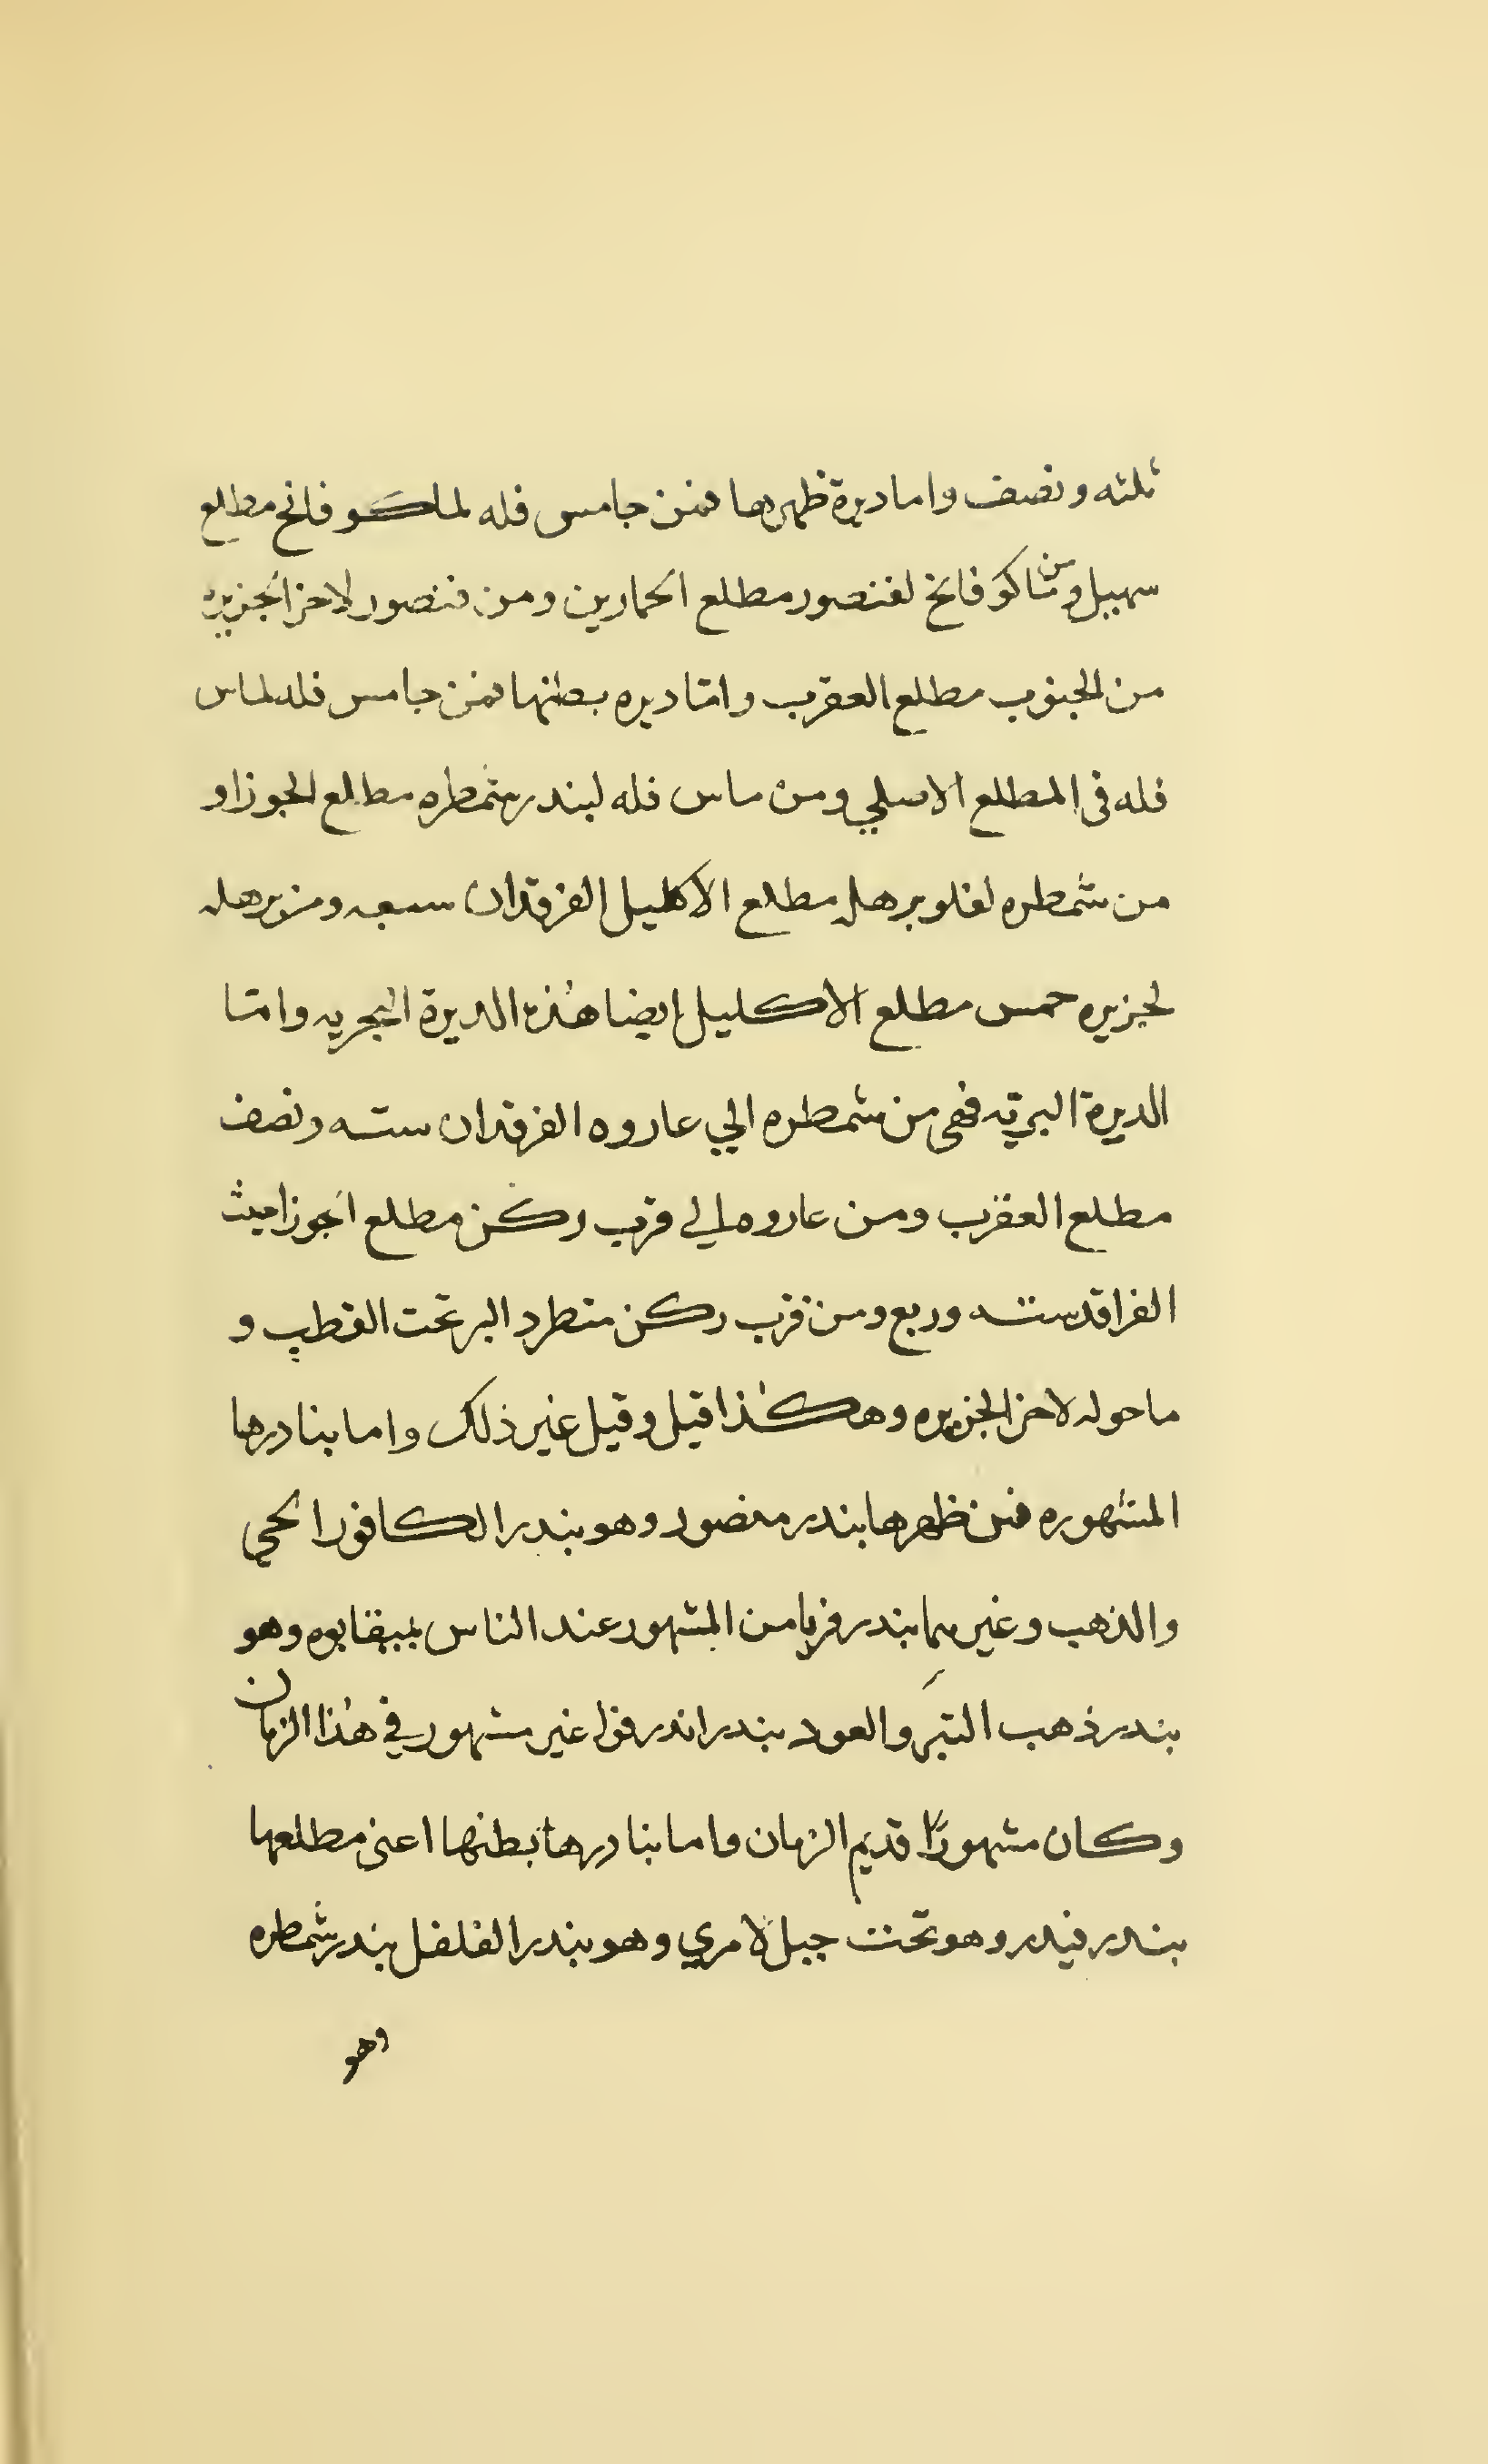 ثلثه ونصف واما ديرة ظهرها فمن جامس فله لملكو فانخ مطلع
سهيل ومن ماكو فانخ لفنصور مطلع الحمارين ومن فنصور لاخر الجزيره
من الجنوب مطلع العقرب وامّا ديره بطنها فمن جامس فله لماس
فله فى المطلع الاصلي ومن ماس فله لبندر شمطره مطلع الجوزا و
من شمطره لفلوبرهله مطلع الاكليل الفرقدان سبعه ومن برهله
لجزيره خمس مطلع الاكليل ايضا هذه الديرة البحريه وامّا
الديرة البريّه فهى من شمطره الي عاروه الفرقدان ستّه ونصف
مطلع العقرب ومن عاروه الي قرب ركن مطلع الجوزا حيث
الفراقد سته وربع ومن قرب ركن متطرد البر تحت القطب و
ما حوله لاخر الجزيره وهكذا قيل وقيل غير ذلك واما بنادرها
المشهوره فمن ظهرها بندر منصور وهو بندر الكافور الحي
والذهب وغيرهما بندر فريامن المشهور عند الناس بمنقابوه وهو
بندر ذهب التبر والعود بندر اندرفول غير مشهور في هذا الزمان
وكان مشهورًا قديم الزمان واما بنادرها بطنها اعنى مطلعها
بندر فيدر وهو تحت جبل لامري وهو بندر الفلفل بندر شمطره
وهو